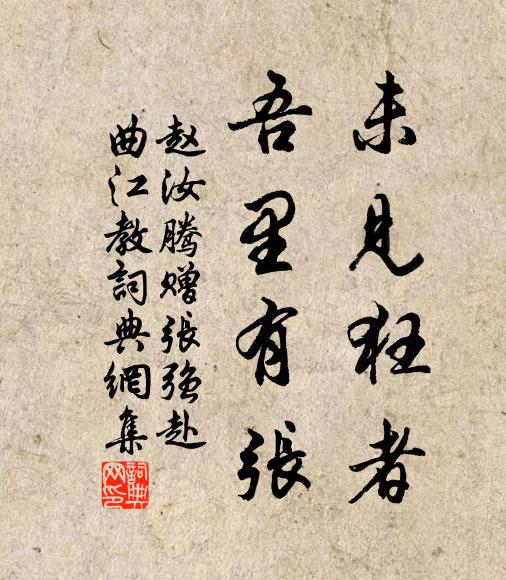 未见狂者
吾里有張
赵汝腾赠張强赴
曲江教詞典網集
詞典
网印